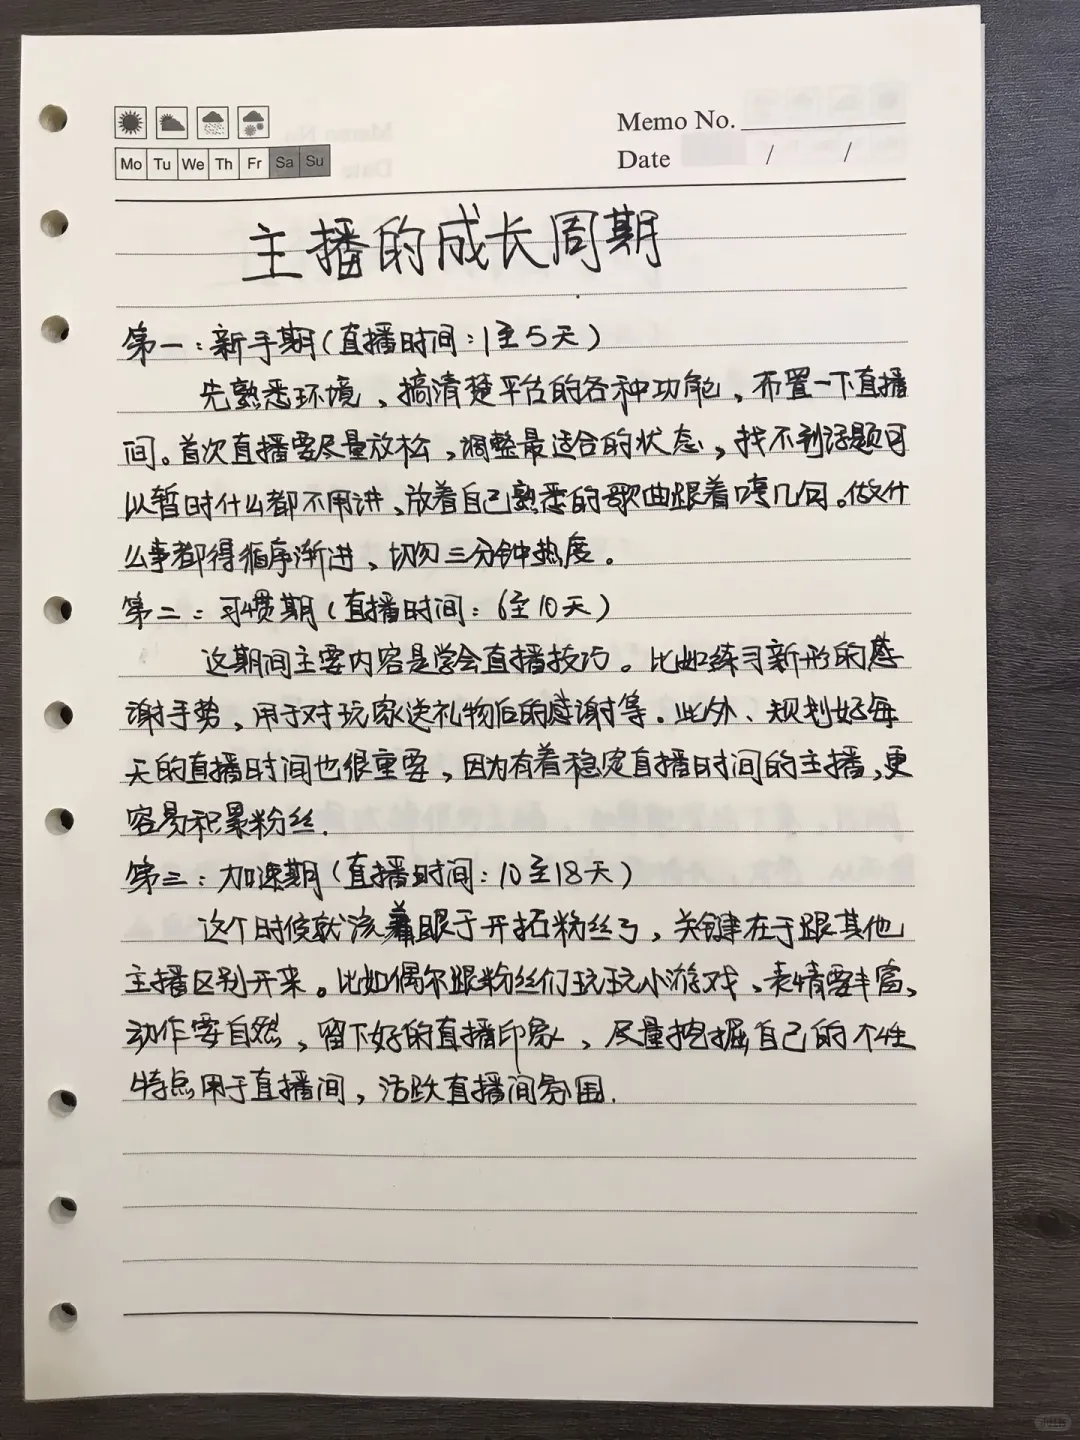 Mo Tu We Th Fr Sa Su
Memo No.
Date / /
主播的成长周期
第一：新手期（直播时间：1至5天）
先熟悉环境、搞清楚平台的各种功能，布置一下直播
间。首次直播要尽量放松，调整最适合的状态，找不到话题可
以暂时什么都不用讲、放着自己熟悉的歌曲跟着哼几句。做什
么事都得循序渐进、切勿三分钟热度。
第二：习惯期（直播时间：6至10天）
这期间主要内容是学会直播技巧。比如练习新形的感
谢手势，用于对玩家送礼物后的感谢等。此外、规划好每
天的直播时间也很重要，因为有着稳定直播时间的主播，更
容易积累粉丝.
第三：加速期（直播时间：10至18天）
这个时候就该着眼于开拓粉丝了，关键在于跟其他
主播区别开来。比如偶尔跟粉丝们玩玩小游戏、表情要丰富、
动作要自然，留下好的直播印象，尽量挖掘自己的个性
特点用于直播间，活跃直播间氛围.